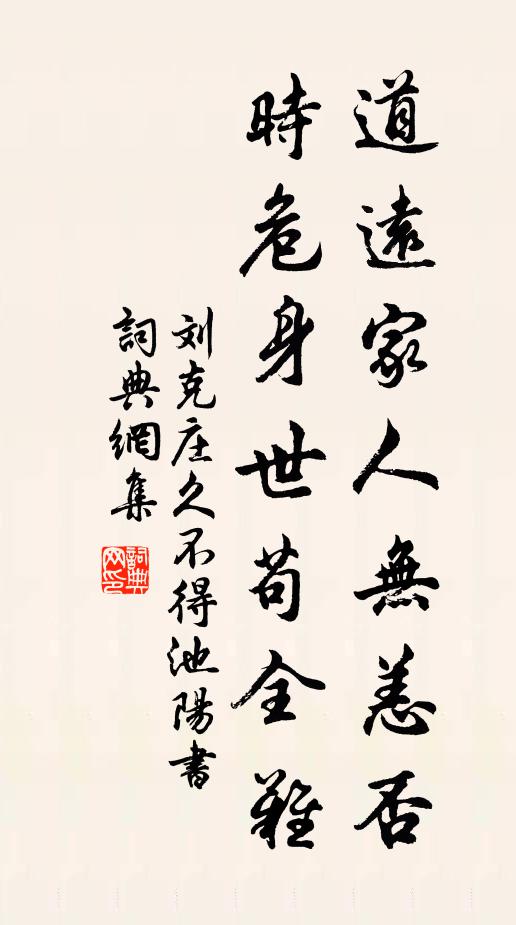 道遠家人無恙否
時危身世苟全難
刘克庄久不得池陽書
詞典網集
詞典网印